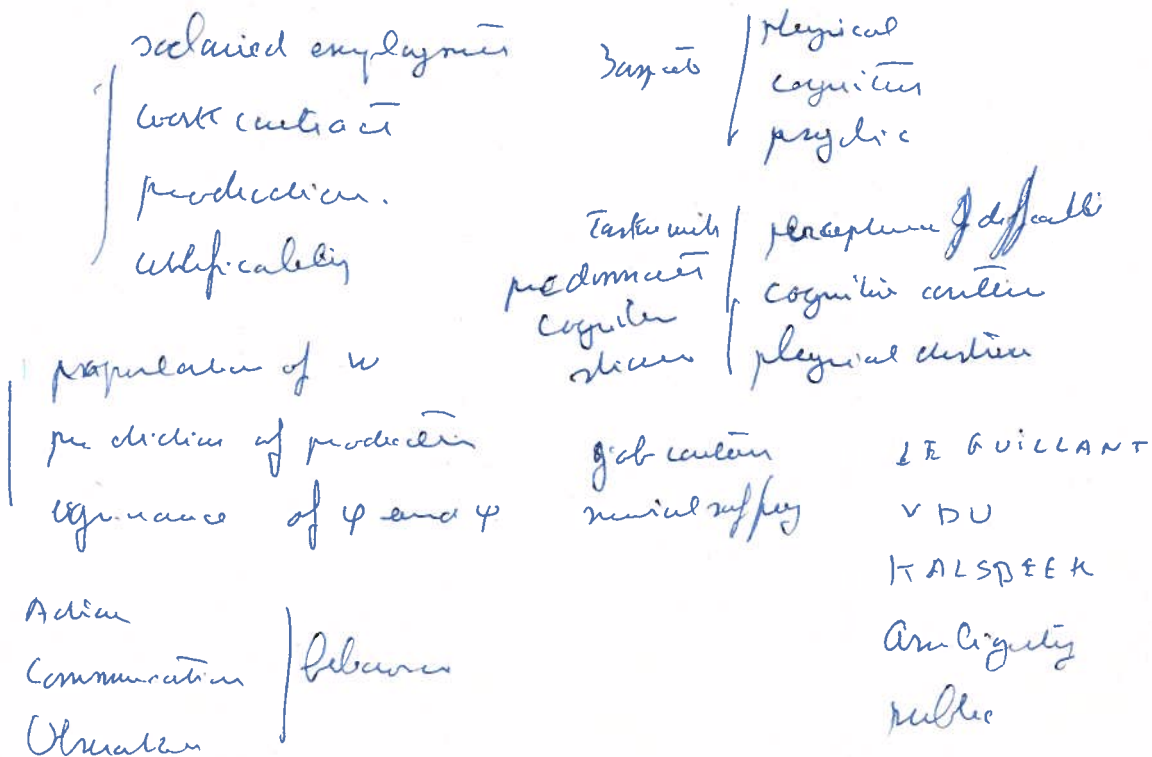 salaried employment
work contract
production.
3 aspects
physical
cognitive
psychic
Tasks with
predominant
cognitive
perception of difficulti
cognitive
physical
of W
prediction of production
ignorance of φ and ψ
job content
mental suffering
LE GUILLANT
VDU
KALSBEEK
Ambiguity
public
Action
Communication
Observation
behaviour